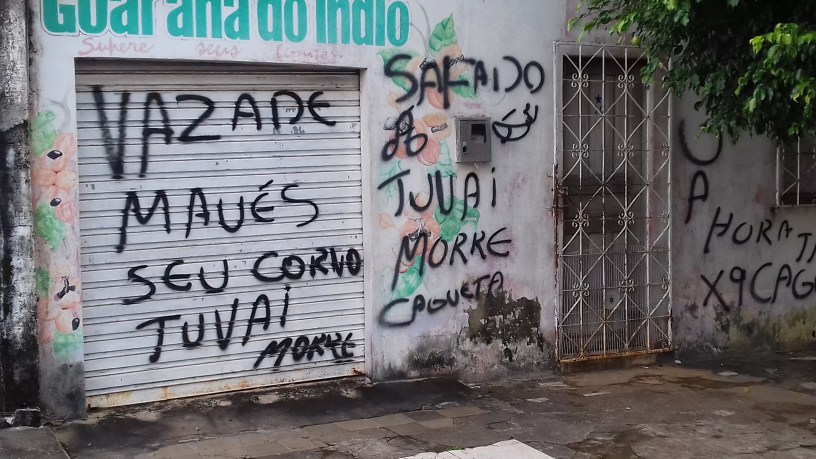 Guaraná do Índio
Supere seus limites
VAZADE
MAUÉS
SEU CORNO
TUVAI
MORRE
SAFAIDO
TUVAI
MORRE
CAGUETA
A
HORA
X9 CAG